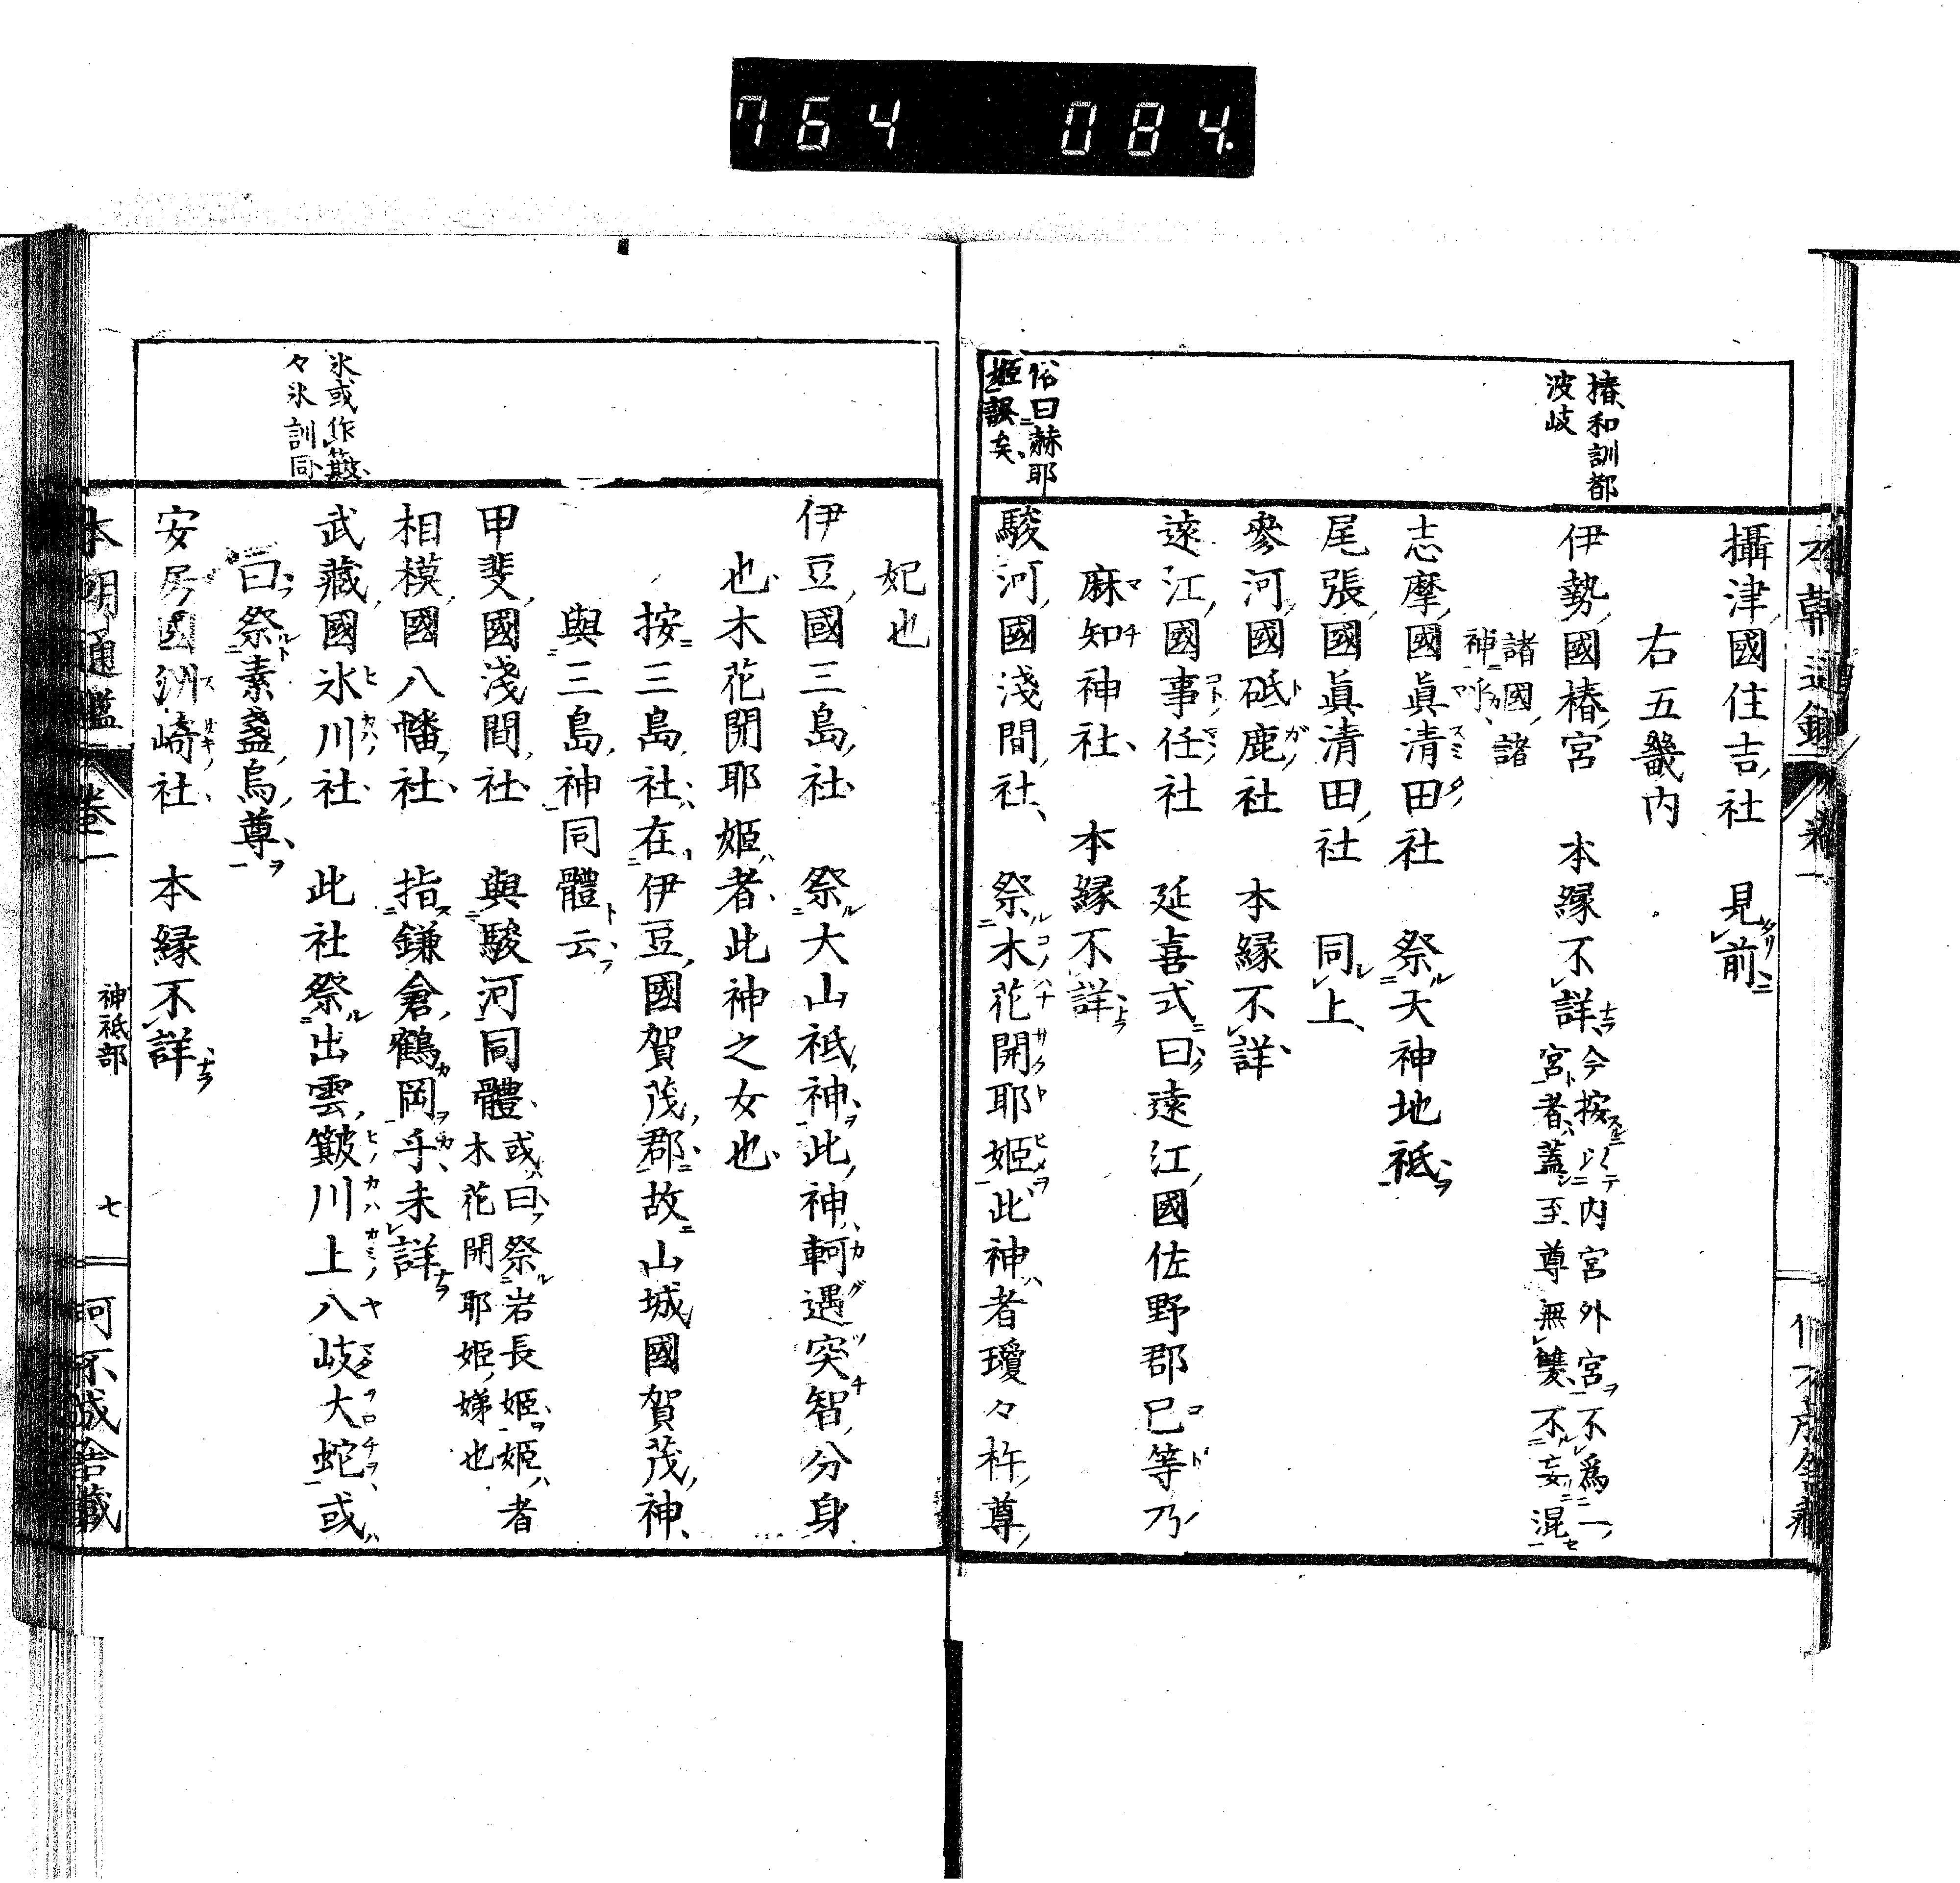 764 084.
椿和訓都
波岐
俗曰赫耶
姫誤矣
攝津國住吉社 見前
右五畿内
伊勢國椿宮 本縁不詳 今按以内宮外宮不爲一
宮者蓋至尊無雙不妄混
諸國諸
神呼
志摩國眞清田社 祭天神地祇
尾張國眞清田社 同上
參河國砥鹿社 本縁不詳
遠江國事任社 延喜式曰遠江國佐野郡已等乃
麻知神社 本縁不詳
駿河國淺間社 祭木花開耶姫此神者瓊々杵尊
氷或作簸
々氷訓同
妃也
伊豆國三島社 祭大山祇神此神軻遇突智分身
也木花開耶姫者此神之女也
按三島社在伊豆國賀茂郡故山城國賀茂神
與三島神同體云
甲斐國淺間社 與駿河同體 或曰祭岩長姫姫者
木花開耶姫娣也
相模國八幡社 指鎌倉鶴岡乎未詳
武藏國氷川社 此社祭出雲簸川上八岐大蛇或
曰祭素盞烏尊
安房國洲崎社 本縁不詳
本朝通鑑 卷一 神祇部 七